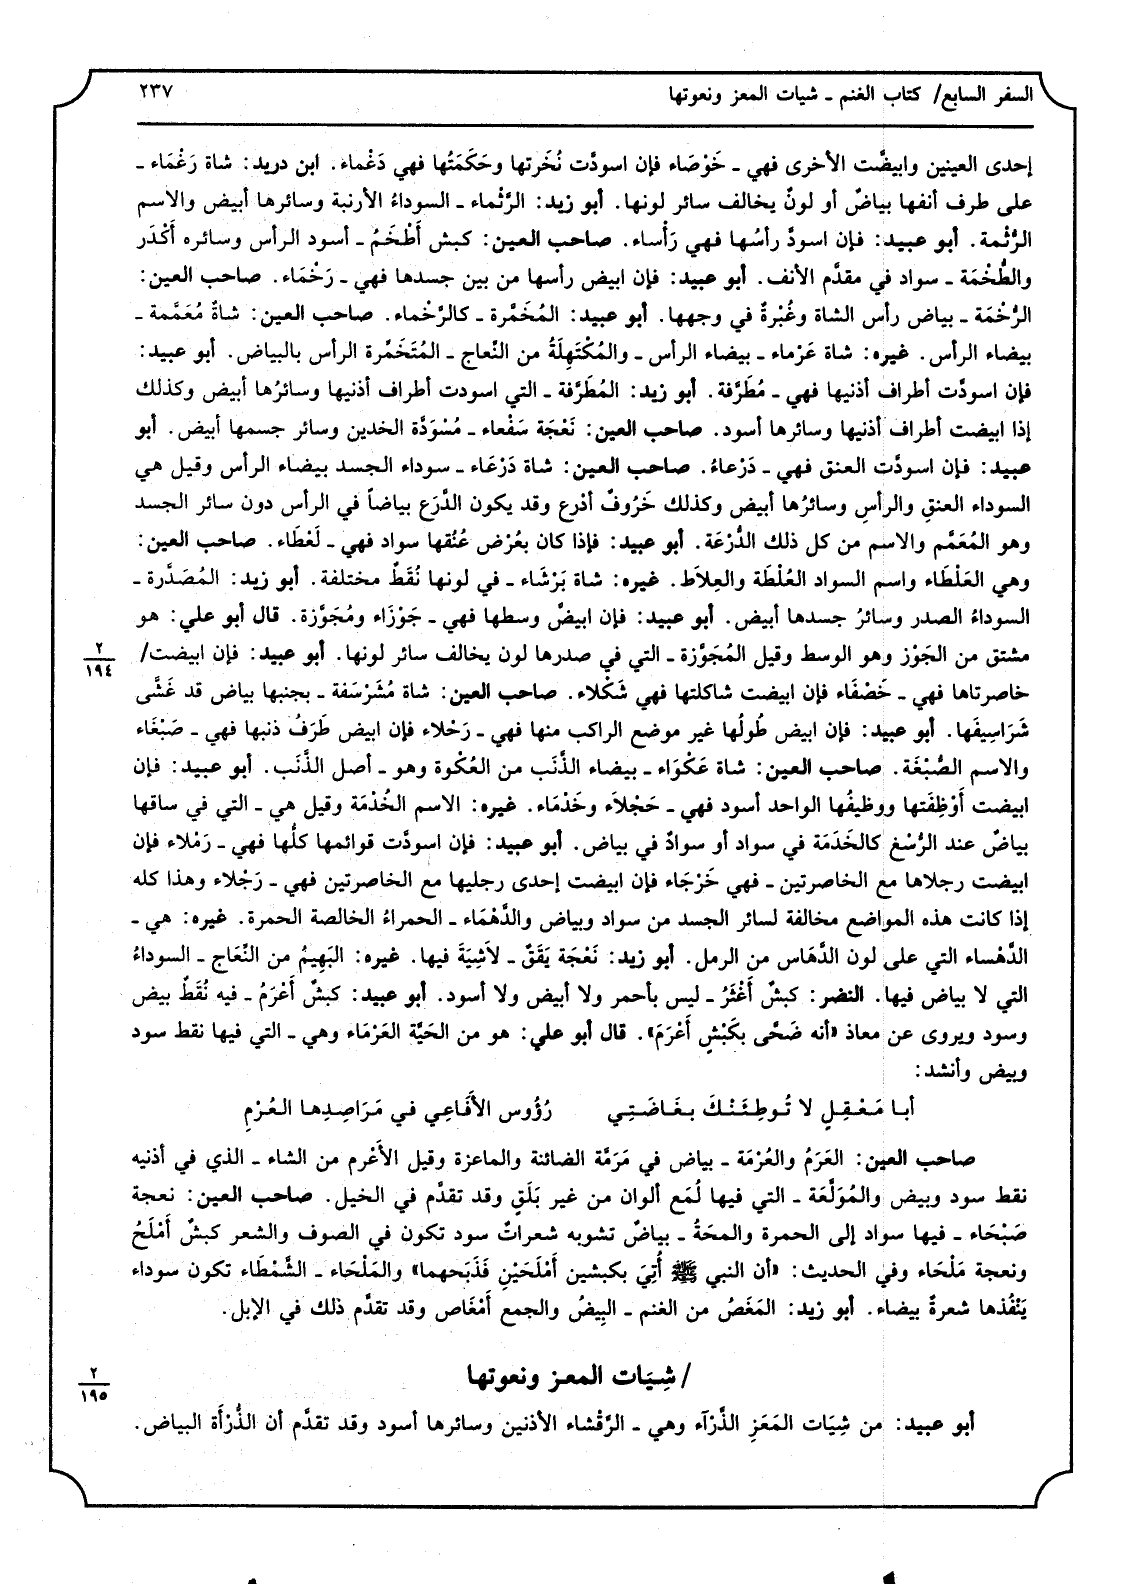 السفر السابع/ كتاب الغنم ـ شيات المعز ونعوتها ٢٣٧
إحدى العينين وابيضَّت الأخرى فهي ـ خَوْصَاء فإن اسودَّت نُخَرتها وحَكَمَتُها فهي دَغْماء. ابن دريد: شاة رَغْماء ـ
على طرف أنفها بياضٌ أو لونٌ يخالف سائر لونها. أبو زيد: الرَّثْماء ـ السوداءُ الأرنبة وسائرها أبيض والاسم
الرُّثْمة. أبو عبيد: فإن اسودَّ رأسُها فهي رَأْساء. صاحب العين: كبش أَطْخَمُ ـ أسود الرأس وسائره أَكْدَر
والطُّخْمَة ـ سواد في مقدَّم الأنف. أبو عبيد: فإن ابيض رأسها من بين جسدها فهي ـ رَخْمَاء. صاحب العين:
الرُّخْمَة ـ بياض رأس الشاة وغُبْرةٌ في وجهها. أبو عبيد: المُخَمَّرة ـ كالرَّخْماء. صاحب العين: شاةٌ مُعَمَّمة ـ
بيضاء الرأس. غيره: شاة عَرْماء ـ بيضاء الرأس ـ والمُكْتَهِلَةُ من النِّعاج ـ المُتَخَمِّرة الرأس بالبياض. أبو عبيد:
فإن اسودَّت أطراف أذنيها فهي ـ مُطَرَّفة. أبو زيد: المُطَرَّفة ـ التي اسودت أطراف أذنيها وسائرُها أبيض وكذلك
إذا ابيضت أطراف أذنيها وسائرها أسود. صاحب العين: نَعْجَة سَفْعاء ـ مُسْوَدَّة الخدين وسائر جسمها أبيض. أبو
عبيد: فإن اسودَّت العنق فهي ـ دَرْعاءُ. صاحب العين: شاة دَرْعَاء ـ سوداء الجسد بيضاء الرأس وقيل هي
السوداء العنقِ والرأسِ وسائرُها أبيض وكذلك خَرُوفٌ أَدْرع وقد يكون الدَّرَع بياضاً في الرأس دون سائر الجسد
وهو المُعَمَّم والاسم من كل ذلك الدُّرْعَة. أبو عبيد: فإذا كان بعُرْض عُنُقها سواد فهي ـ لَعْطَاء. صاحب العين:
وهي العَلْطَاء واسم السواد العُلْطَة والعِلاَط. غيره: شاة بَرْشَاء ـ في لونها نُقَطٌ مختلفة. أبو زيد: المُصَدَّرة ـ
السوداءُ الصدر وسائرُ جسدها أبيض. أبو عبيد: فإن ابيضَّ وسطها فهي ـ جَوْزَاء ومُجَوَّزة. قال أبو علي: هو
مشتق من الجَوْز وهو الوسط وقيل المُجَوَّزة ـ التي في صدرها لون يخالف سائر لونها. أبو عبيد: فإن ابيضت/
٢
١٩٤
خاصرتاها فهي ـ خَصْفَاء فإن ابيضت شاكلتها فهي شَكْلاء. صاحب العين: شاة مُشَرْسَفة ـ بجنبها بياض قد غَشَّى
شَرَاسِيفَها. أبو عبيد: فإن ابيض طُولُها غير موضع الراكب منها فهي ـ رَحْلاء فإن ابيض طَرَفُ ذنبها فهي ـ صَبْغَاء
والاسم الصُّبْغَة. صاحب العين: شاة عَكْوَاء ـ بيضاء الذَّنَب من العُكْوة وهو ـ أصل الذَّنَب. أبو عبيد: فإن
ابيضت أَوْظِفَتها ووظيفُها الواحد أسود فهي ـ حَجْلاَء وخَدْمَاء. غيره: الاسم الخُدْمَة وقيل هي ـ التي في ساقها
بياضٌ عند الرُّسْغ كالخَدَمَة في سواد أو سوادٌ في بياض. أبو عبيد: فإن اسودَّت قوائمها كلُّها فهي ـ رَمْلاء فإن
ابيضت رجلاها مع الخاصرتين ـ فهي خَرْجَاء فإن ابيضت إحدى رجليها مع الخاصرتين فهي ـ رَجْلاء وهذا كله
إذا كانت هذه المواضع مخالفة لسائر الجسد من سواد وبياض والدَّهْمَاء ـ الحمراءُ الخالصة الحمرة. غيره: هي ـ
الدَّهْساء التي على لون الدَّهَاس من الرمل. أبو زيد: نَعْجَة يَقَقٌ ـ لاَشِيَةَ فيها. غيره: البَهِيمُ من النِّعَاج ـ السوداءُ
التي لا بياض فيها. النضر: كبشٌ أَغْثَرُ ـ ليس بأحمر ولا أبيض ولا أسود. أبو عبيد: كبشٌ أَعْرَمُ ـ فيه نُقَطٌ بيض
وسود ويروى عن معاذ «أنه ضَحَّى بكَبْشٍ أَعْرَمَ». قال أبو علي: هو من الحَيَّة العَرْمَاء وهي ـ التي فيها نقط سود
وبيض وأنشد:
أبـا مَـعْـقِـلٍ لا تُـوطِـئَـنْـكَ بـغَـاضَـتِـي رُؤُوس الأَفَاعِي في مَرَاصِدِهـا العُرْمِ
صاحب العين: العَرَمُ والعُرْمَة ـ بياض في مَرَمَّة الضائنة والماعزة وقيل الأَعْرم من الشاء ـ الذي في أذنيه
نقط سود وبيض والمُوَلَّعَة ـ التي فيها لُمَع ألوان من غير بَلَقٍ وقد تقدَّم في الخيل. صاحب العين: نعجة
صَبْحَاء ـ فيها سواد إلى الحمرة والمحَةُ ـ بياضٌ تشوبه شعراتٌ سود تكون في الصوف والشعر كبشٌ أَمْلَحُ
ونعجة مَلْحَاء وفي الحديث: «أن النبي ﷺ أُتِيَ بكبشين أَمْلَحَيْنِ فَذَبَحهما» والمَلْحَاء ـ الشَّمْطَاء تكون سوداء
يَنْفُذها شعرةٌ بيضاء. أبو زيد: المَغَصُ من الغنم ـ البِيضُ والجمع أَمْغَاص وقد تقدَّم ذلك في الإبل.
/ شِيَات المعز ونعوتها
٢
١٩٥
أبو عبيد: من شِيَات المَعَزِ الذَّرْآء وهي ـ الرَّقْشاء الأذنين وسائرها أسود وقد تقدَّم أن الذُّرْأَة البياض.